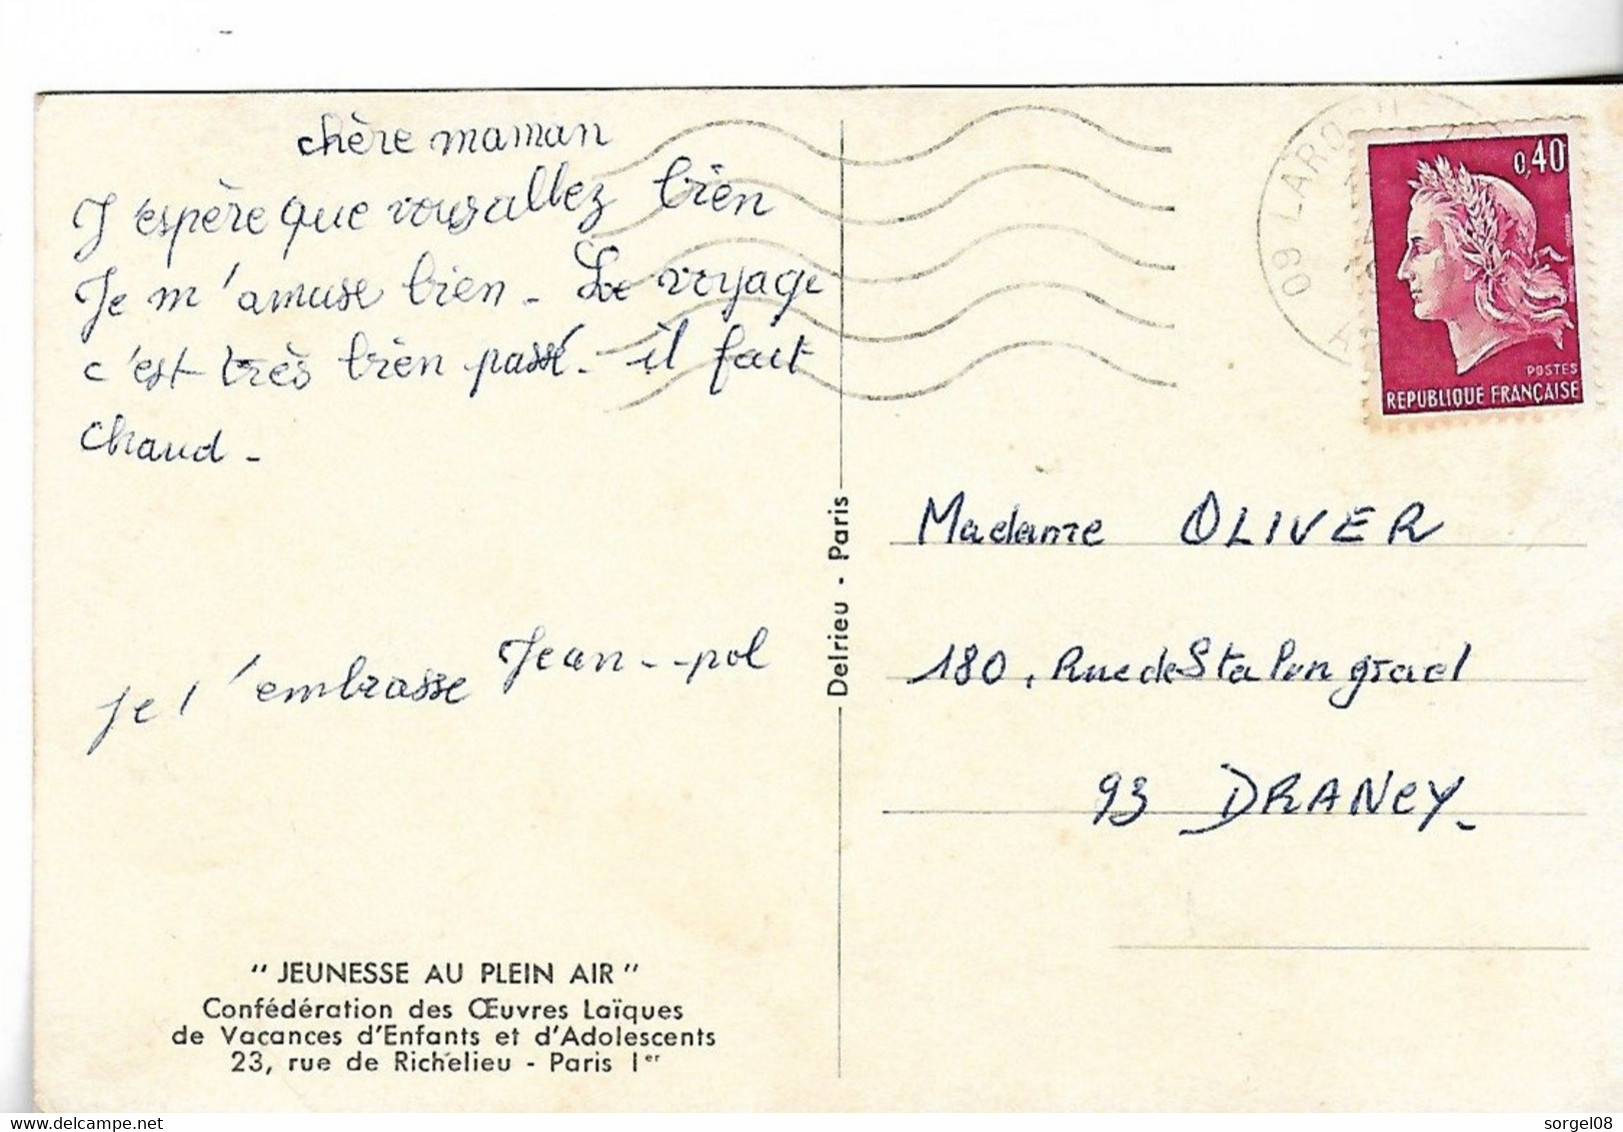 chère maman
J'espère que vous allez bien
Je m'amuse bien - Le voyage
c'est très bien passé. il fait
chaud -
je t'embrasse Jean - pol
"JEUNESSE AU PLEIN AIR"
Confédération des Œuvres Laïques
de Vacances d'Enfants et d'Adolescents
23, rue de Richelieu - Paris 1er
Delrieu - Paris
09 LARO
0,40
POSTES
REPUBLIQUE FRANÇAISE
Madame OLIVER
180, Rue de Stalingrad
93 DRANCY -
delcampe.net
sorgel08